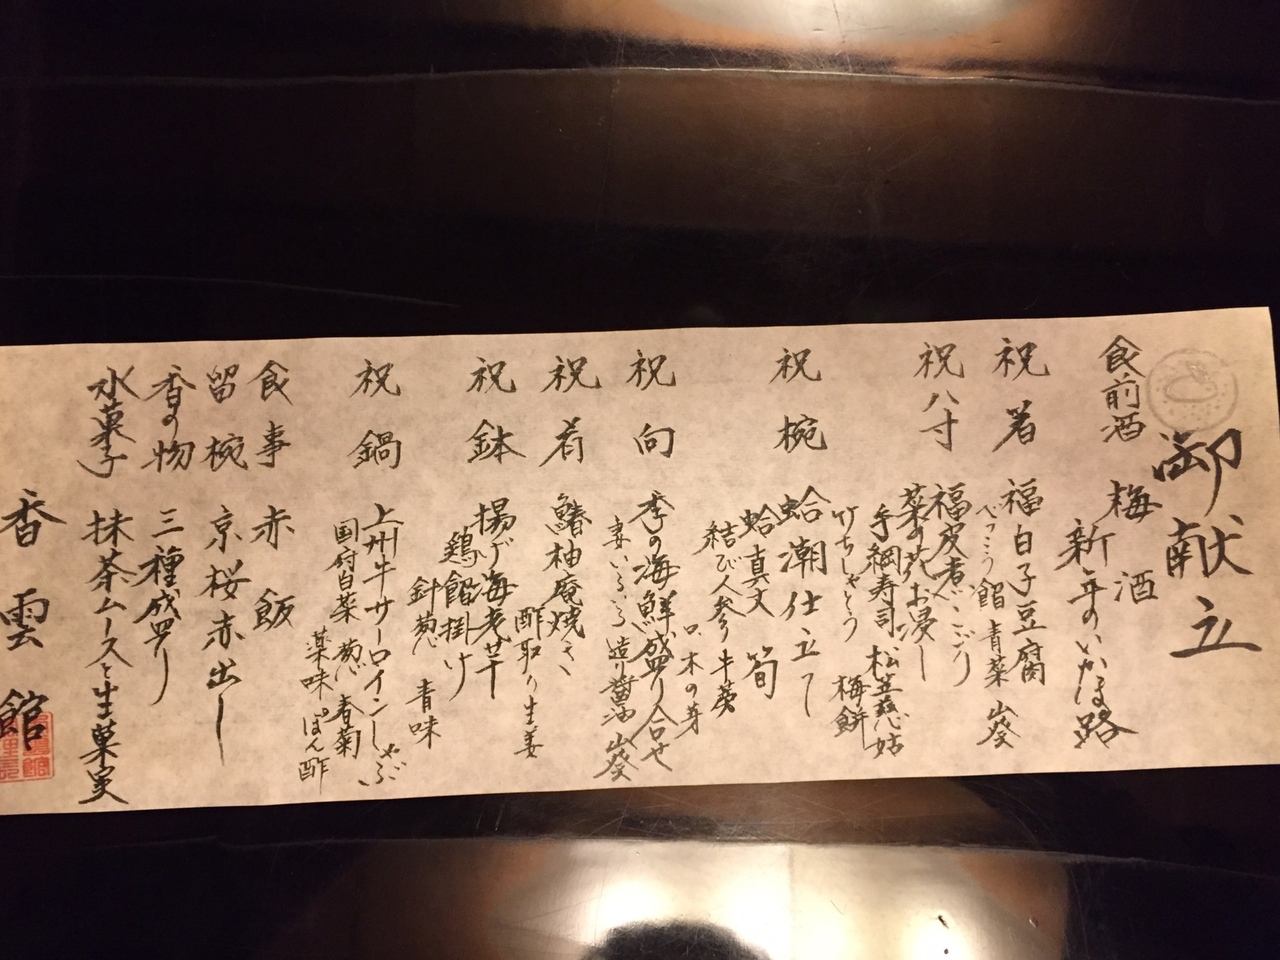 御献立
食前酒 梅酒
新年のいかほ路
祝着 福白子豆腐
べっこう餡 青菜 山葵
祝八寸 福皮煮こごり
菜の花お浸し
手綱寿司 松笠慈姑
竹ちしゃとう 梅餅
祝椀 蛤潮仕立て
蛤真丈 筍
結び人参り牛蒡
木の芽
祝向 季の海鮮盛り合せ
妻いろいろ 造り醤油 山葵
祝肴 鰆柚庵焼き
酢取り生姜
祝鉢 揚げ海老芋
鶏餡掛け
針葱 青味
祝鍋 上州牛サーロインしゃぶ
国府白菜 葱 春菊
薬味 ぽん酢
食事 赤飯
留椀 京桜赤出し
香の物 三種盛り
水菓子 抹茶ムースと生菓実
香雲館